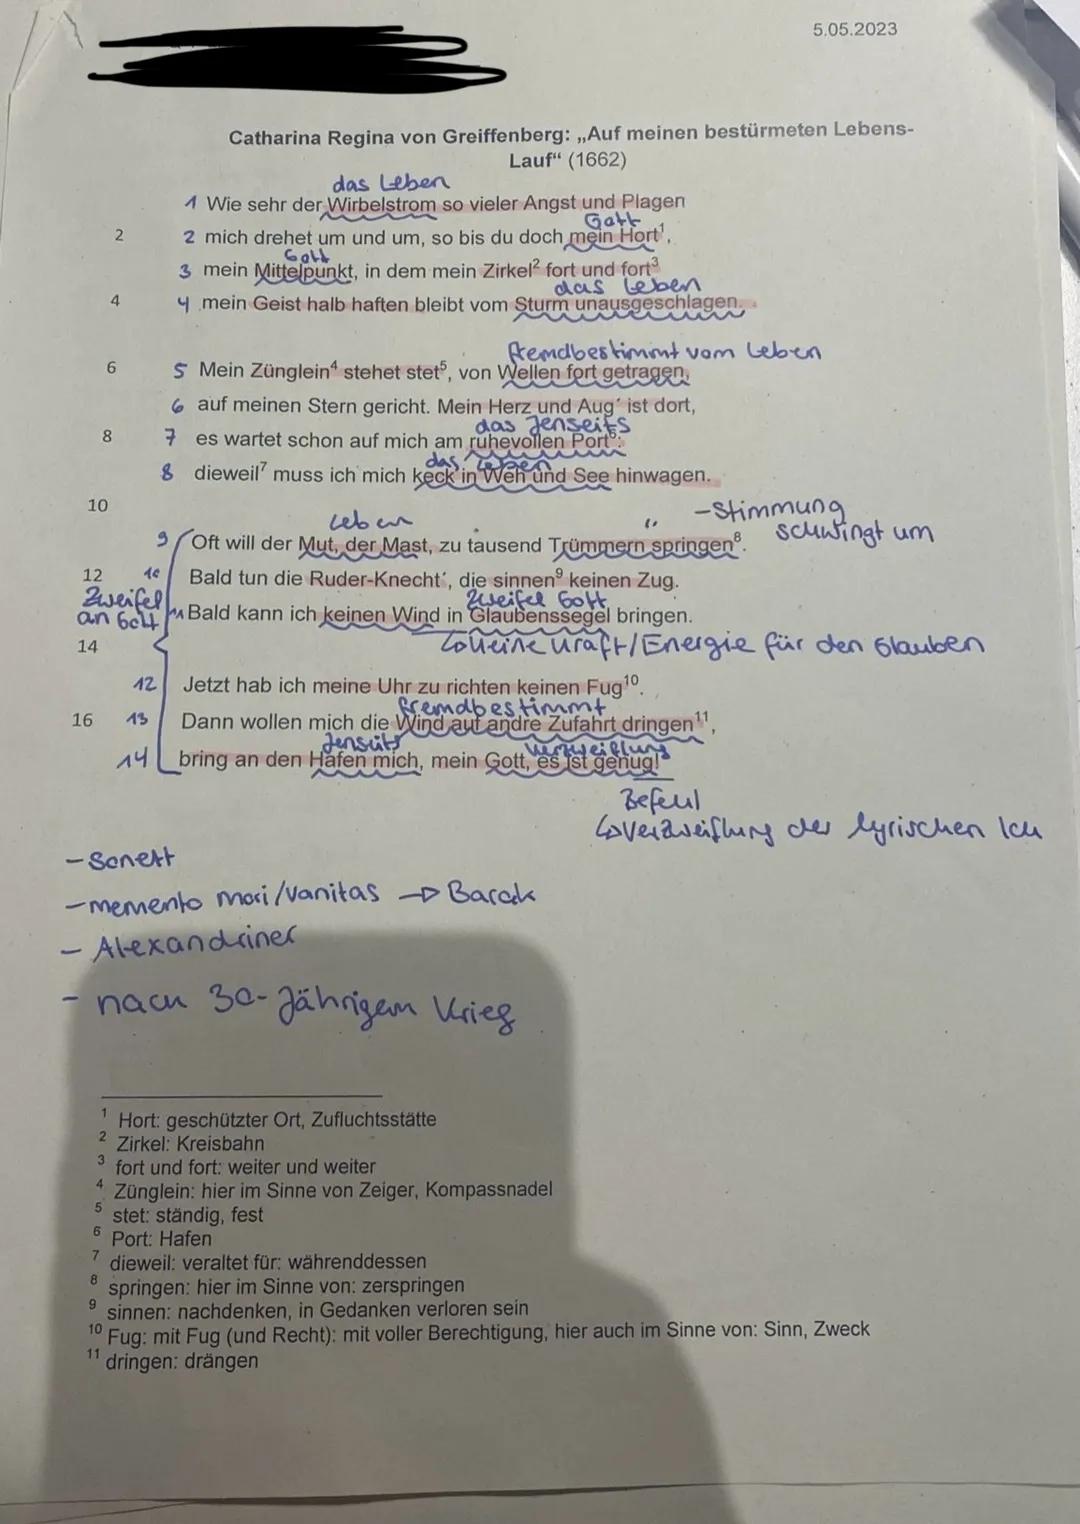 5.05.2023
Catharina Regina von Greiffenberg: „Auf meinen bestürmeten Lebens-
Lauf“ (1662)
das Leben
1 Wie sehr der Wirbelstrom so vieler Angst und Plagen
Gott
2 2 mich drehet um und um, so bis du doch mein Hort¹,
Gott
3 mein Mittelpunkt, in dem mein Zirkel² fort und fort³
das Leben
4 4 mein Geist halb haften bleibt vom Sturm unausgeschlagen.
fremdbestimmt vom Leben
6 5 Mein Zünglein⁴ stehet stet⁵, von Wellen fort getragen,
6 auf meinen Stern gericht. Mein Herz und Aug’ ist dort,
das Jenseits
8 7 es wartet schon auf mich am ruhevollen Port⁶:
das Leben
8 dieweil⁷ muss ich mich keck in Weh und See hinwagen.
10
Leben " -Stimmung
schwingt um
9 Oft will der Mut, der Mast, zu tausend Trümmern springen⁸.
12 10 Bald tun die Ruder-Knecht’, die sinnen⁹ keinen Zug.
Zweifel an Gott
Zweifel Gott
11 Bald kann ich keinen Wind in Glaubenssegel bringen.
↳keine Kraft/Energie für den Glauben
14
12 Jetzt hab ich meine Uhr zu richten keinen Fug¹⁰.
fremdbestimmt
16 13 Dann wollen mich die Wind auf andre Zufahrt dringen¹¹,
Jenseits Verzweiflung
14 bring an den Hafen mich, mein Gott, es ist genug!
Befehl
↳Verzweiflung des lyrischen Ich
-Sonett
-memento mori/vanitas → Barock
- Alexandriner
- nach 30-Jährigem Krieg
¹ Hort: geschützter Ort, Zufluchtsstätte
² Zirkel: Kreisbahn
³ fort und fort: weiter und weiter
⁴ Zünglein: hier im Sinne von Zeiger, Kompassnadel
⁵ stet: ständig, fest
⁶ Port: Hafen
⁷ dieweil: veraltet für: währenddessen
⁸ springen: hier im Sinne von: zerspringen
⁹ sinnen: nachdenken, in Gedanken verloren sein
¹⁰ Fug: mit Fug (und Recht): mit voller Berechtigung, hier auch im Sinne von: Sinn, Zweck
¹¹ dringen: drängen